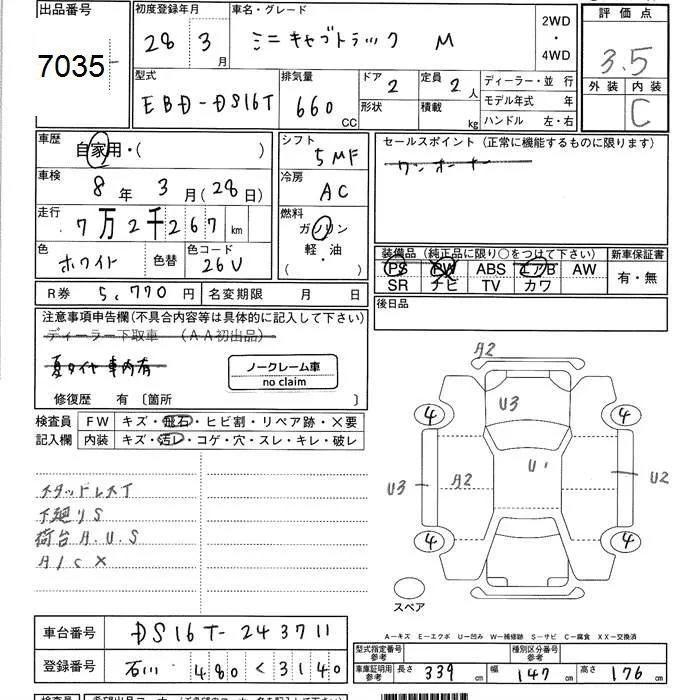 出品番号 初度登録年月 車名・グレード 2WD・4WD 評価点
7035 28 3月 ミニキャブトラック M 3.5
型式 排気量 ドア 定員 ディーラー・並 行 外装 内装
EBD-DS16T 660CC 2 2人 モデル年式 年 C
形状 積載 kg ハンドル 左・右
車歴 自家用・( ) シフト 5MF セールスポイント (正常に機能するものに限ります)
ワンオーナー
車検 8年 3月(28日) 冷房 AC
走行 7万2千267km 燃料 ガソリン
軽・油
( ・ )
色 ホワイト 色替 色コード 26U
装備品 (純正品に限り○をつけて下さい) 新車保証書
PS PW ABS エアB AW 有・無
SR ナビ TV カワ
R券 5,770円 名変期限 月 日 後日品
注意事項申告欄(不具合内容等は具体的に記入して下さい)
ディーラー下取車 (AA初出品)
夏タイヤ車内有 ノークレーム車
no claim
修復歴 有 〔箇所 〕
検査員 FW キズ・飛石・ヒビ割・リペア跡・×要
記入欄 内装 キズ・汚レ・コゲ・穴・スレ・キレ・破レ
A2
U3
4 4
U3 A2 U' U2
4 4
スタッドレスT
下廻りS
荷台A.U.S
A/C×
スペア
A—キズ E—エクボ U—凹み W—補修跡 S—サビ C—腐食 XX—交換済
車台番号 DS16T-243711 型式指定番号 種別区分番号
登録番号 石川 480 く 3140 車庫証明用参考寸法 長さ 339cm 幅 147cm 高さ 176cm